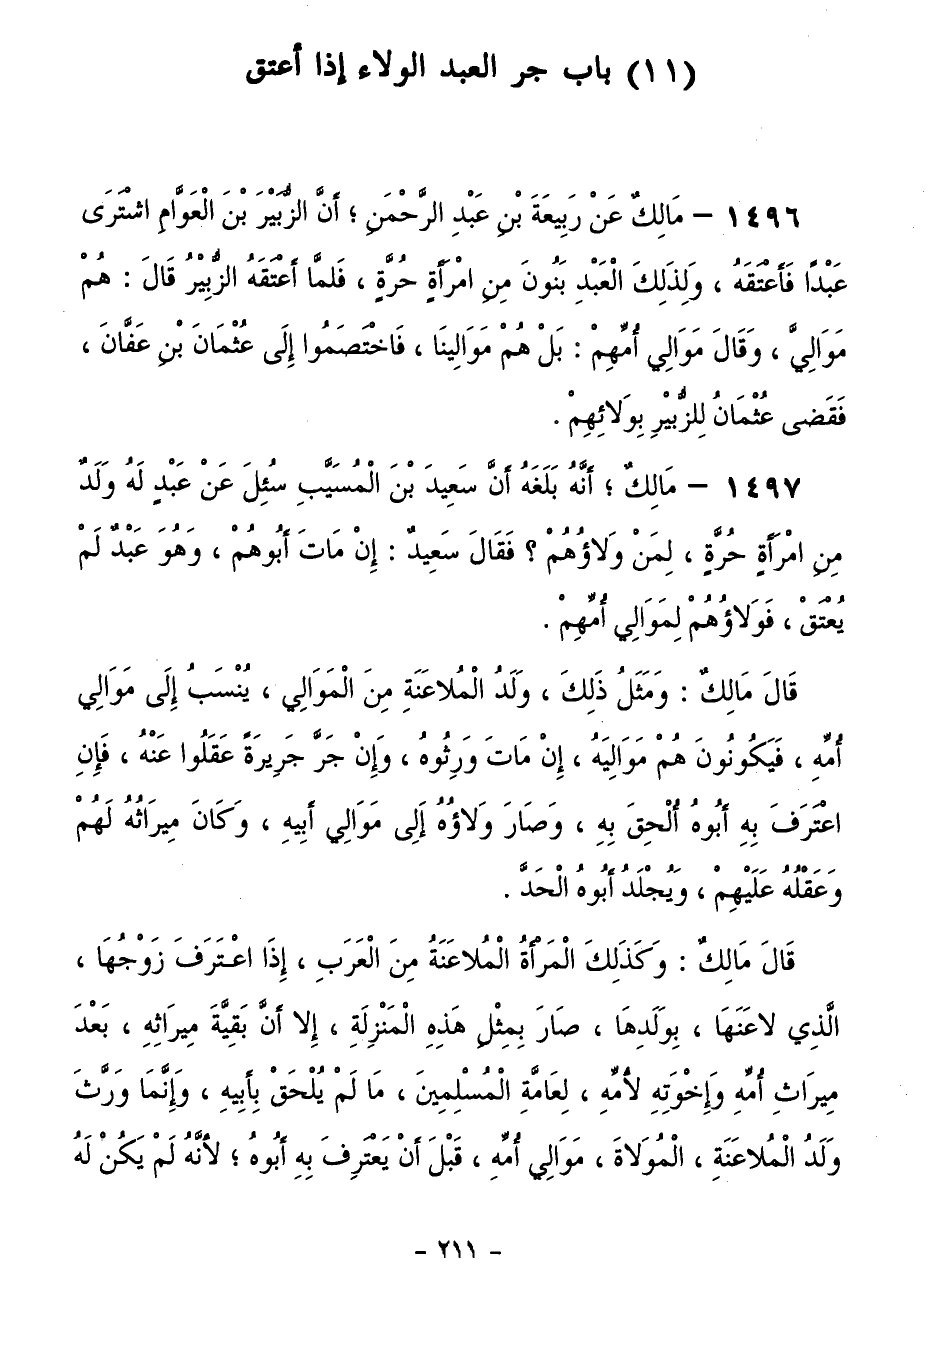 (١١) باب جر العبد الولاء إذا أعتق
١٤٩٦ – مَالِكٌ عَنْ رَبِيعَةَ بْنِ عَبْدِ الرَّحْمَنِ ؛ أَنَّ الزُّبَيْرَ بْنَ الْعَوَّامِ اشْتَرَى
عَبْدًا فَأَعْتَقَهُ ، وَلِذَلِكَ الْعَبْدِ بَنُونَ مِنِ امْرَأَةٍ حُرَّةٍ ، فَلمَّا أَعْتَقَهُ الزُّبَيْرُ قَالَ : هُمْ
مَوَالِيَّ ، وَقَالَ مَوَالِي أُمِّهِمْ : بَلْ هُمْ مَوَالِينَا ، فَاخْتَصَمُوا إِلَى عُثْمَانَ بْنِ عَفَّانَ ،
فَقَضى عُثْمَانُ لِلزُّبَيْرِ بِوَلَائِهِمْ .
١٤٩٧ – مَالِكٌ ؛ أَنَّهُ بَلَغَهُ أَنَّ سَعِيدَ بْنَ الْمُسَيَّبِ سُئِلَ عَنْ عَبْدٍ لَهُ وَلَدٌ
مِنِ امْرَأَةٍ حُرَّةٍ ، لِمَنْ وَلَاؤُهُمْ ؟ فَقَالَ سَعِيدٌ : إِنْ مَاتَ أَبُوهُمْ ، وَهُوَ عَبْدٌ لَمْ
يُعْتَقْ ، فَوَلاؤُهُمْ لِمَوَالِي أُمِّهِمْ .
قَالَ مَالِكٌ : وَمَثَلُ ذَلِكَ ، وَلَدُ الْمُلاعَنَةِ مِنَ الْمَوَالِي ، يُنْسَبُ إِلَى مَوَالِي
أُمِّهِ ، فَيَكُونُونَ هُمْ مَوَالِيَهُ ، إِنْ مَاتَ وَرِثُوهُ ، وَإِنْ جَرَّ جَرِيرَةً عَقَلُوا عَنْهُ ، فَإِنِ
اعْتَرَفَ بِهِ أَبُوهُ أُلْحِقَ بِهِ ، وَصَارَ وَلاؤُهُ إِلى مَوَالِي أَبِيهِ ، وَكَانَ مِيرَاثُهُ لَهُمْ
وَعَقْلُهُ عَلَيْهِمْ ، وَيُجْلَدُ أَبُوهُ الْحَدَّ .
قَالَ مَالِكٌ : وَكَذَلِكَ الْمَرْأَةُ الْمُلاعَنَةُ مِنَ الْعَرَبِ ، إِذَا اعْتَرَفَ زَوْجُهَا ،
الَّذِي لاعَنَهَا ، بِوَلَدِهَا ، صَارَ بِمِثْلِ هَذِهِ الْمَنْزِلَةِ ، إِلا أَنَّ بَقِيَّةَ مِيرَاثِهِ ، بَعْدَ
مِيرَاثِ أُمِّهِ وَإِخْوَتِهِ لأُمِّهِ ، لِعَامَّةِ الْمُسْلِمِينَ ، مَا لَمْ يُلْحَقْ بِأَبِيهِ ، وَإِنَّمَا وَرَّثَ
وَلَدُ الْمُلاعَنَةِ ، الْمُوَلاةَ ، مَوَالِي أُمِّهِ ، قَبْلَ أَنْ يَعْتَرِفَ بِهِ أَبُوهُ ؛ لأَنَّهُ لَمْ يَكُنْ لَهُ
- ٢١١ -